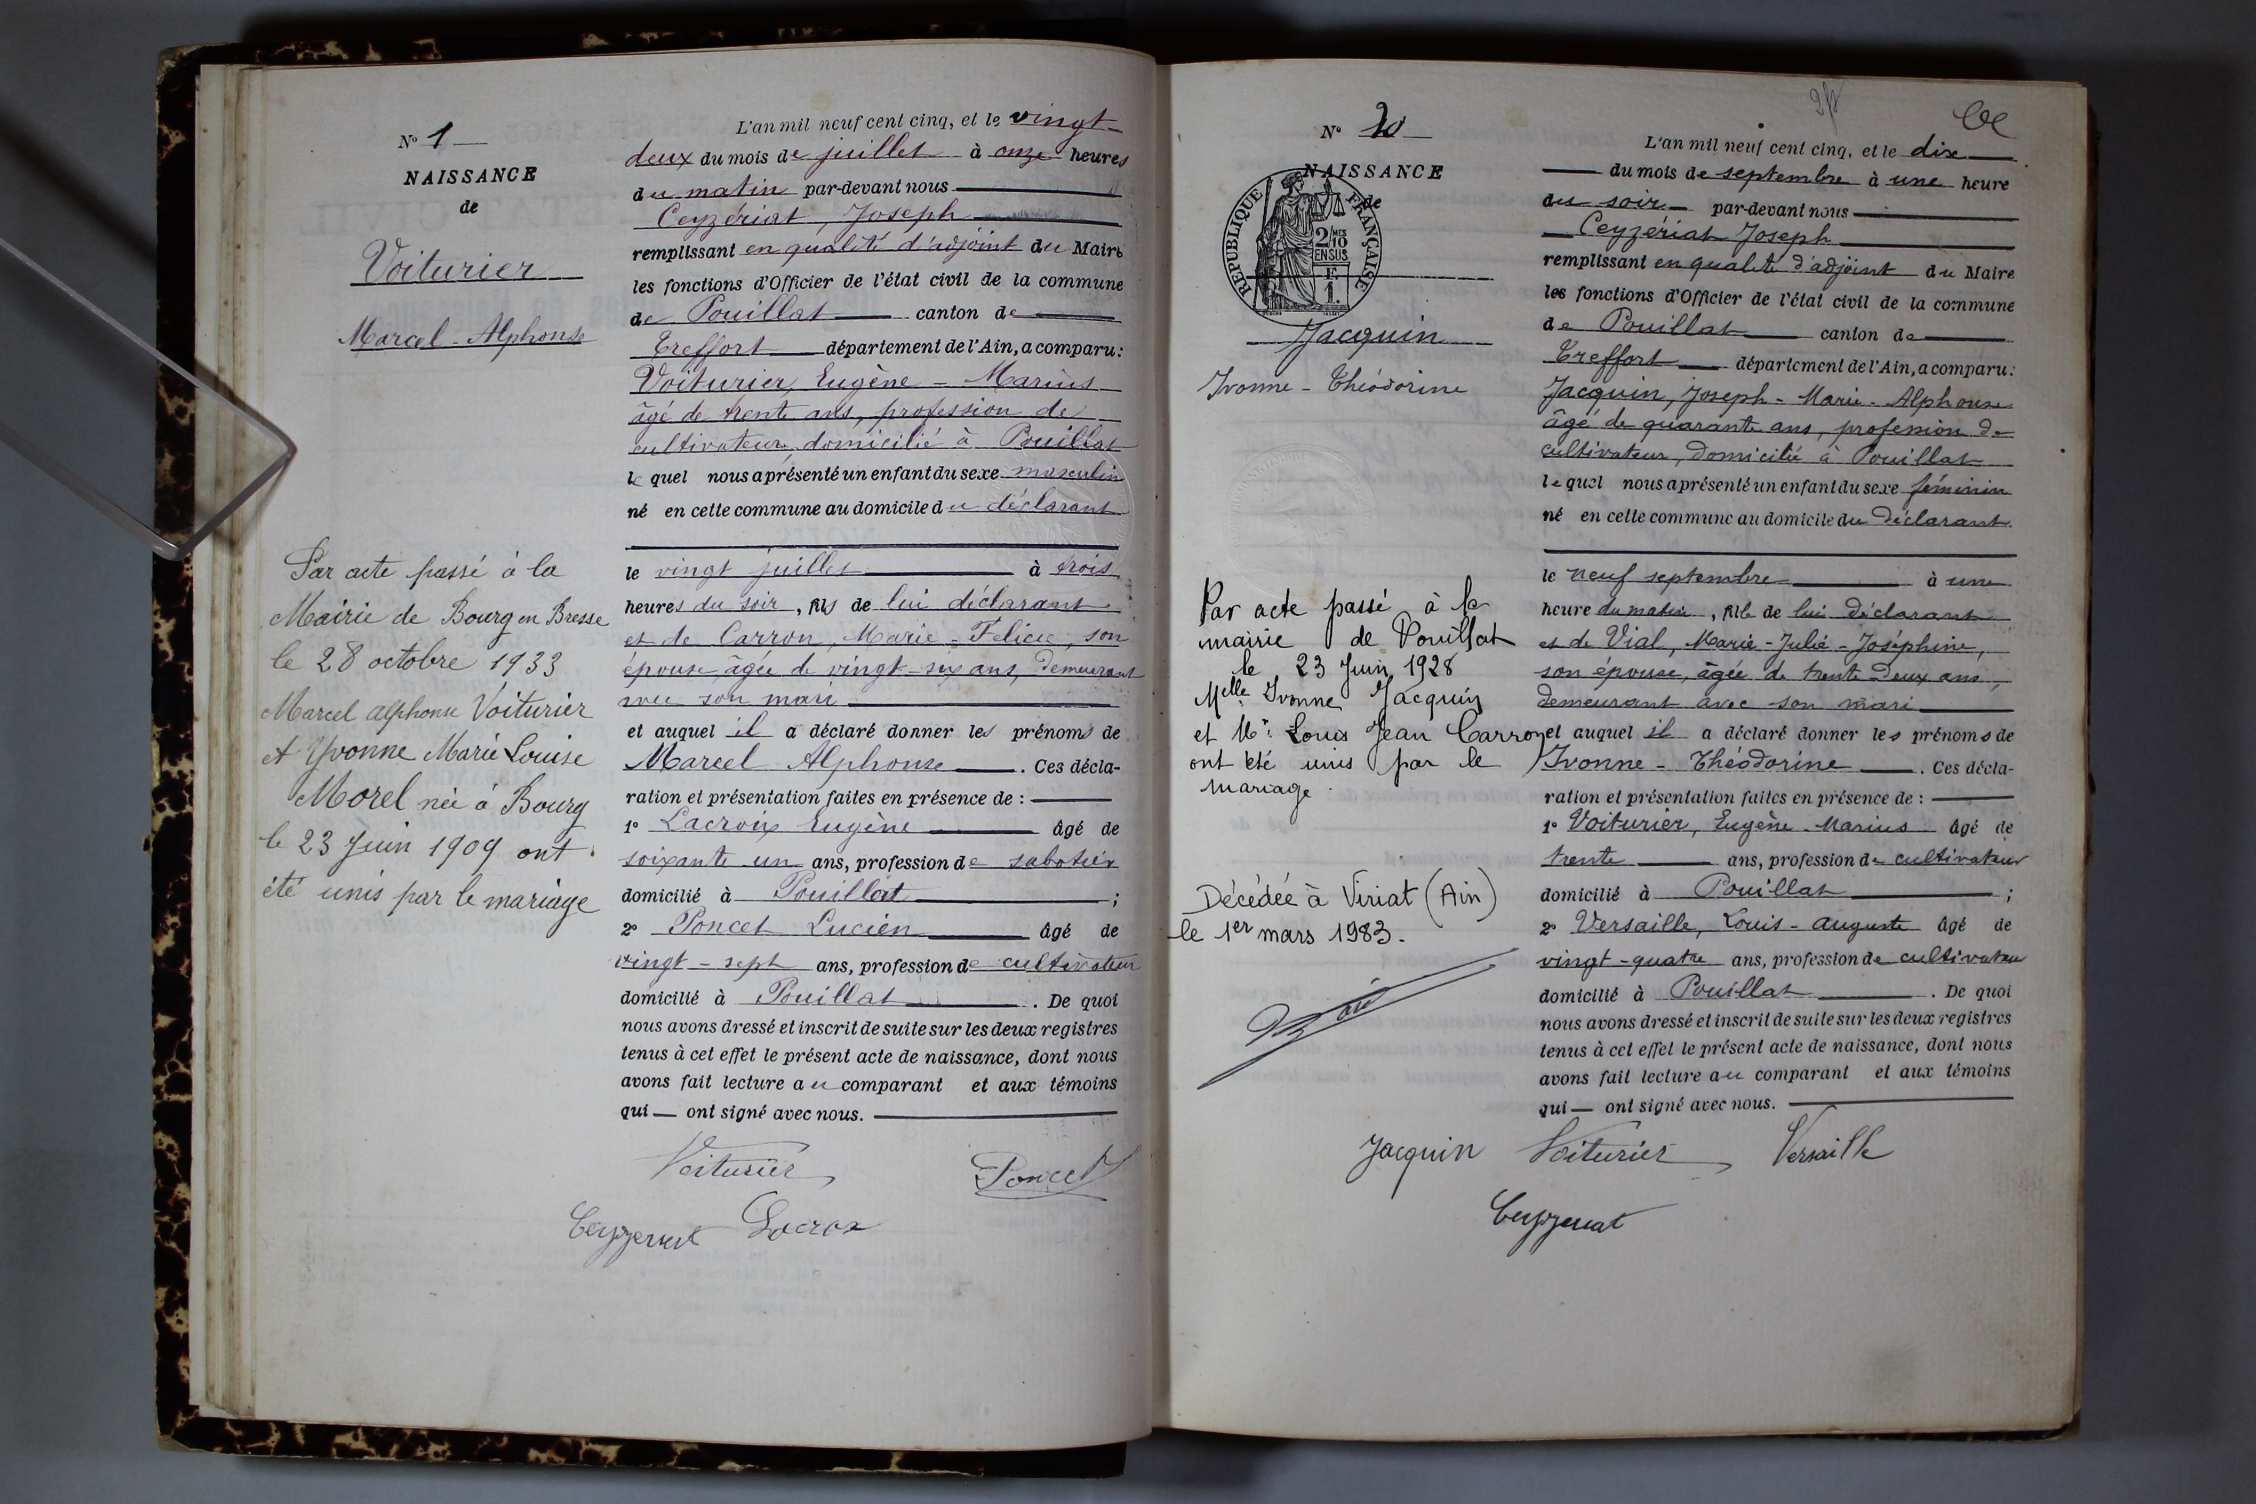 N° 1
NAISSANCE
de
Voiturier
Marcel-Alphonse
Par acte passé à la
Mairie de Bourg en Bresse
le 28 octobre 1933
Marcel alphonse Voiturier
et Yvonne Marie Louise
Morel née à Bourg
le 23 Juin 1909 ont
été unis par le mariage
L'an mil neuf cent cinq, et le vingt-
deux du mois de juillet à onze heures
du matin par-devant nous
Ceyzériat, Joseph
remplissant en qualité d'adjoint du Maire
les fonctions d'Officier de l'état civil de la commune
de Pouillat canton de
Treffort département de l'Ain, a comparu:
Voiturier, Eugène - Marius
âgé de trente ans, profession de
cultivateur, domicilié à Pouillat
le quel nous a présenté un enfant du sexe masculin
né en cette commune au domicile du déclarant
le vingt juillet à trois
heures du soir, fils de lui déclarant
et de Carron, Marie-Felicie, son
épouse âgée de vingt-six ans, demeurant
avec son mari
et auquel il a déclaré donner les prénoms de
Marcel Alphonse. Ces décla-
ration et présentation faites en présence de :
1° Lacroix Eugène âgé de
soixante un ans, profession de sabotier
domicilié à Pouillat ;
2° Poncet Lucien âgé de
vingt-sept ans, profession de cultivateur
domicilié à Pouillat. De quoi
nous avons dressé et inscrit de suite sur les deux registres
tenus à cet effet le présent acte de naissance, dont nous
avons fait lecture au comparant et aux témoins
qui — ont signé avec nous.
Voiturier Poncet
Ceyzeriat Lacroix
N°
NAISSANCE
de
RÉPUBLIQUE FRANÇAISE
2/10 MES
EN SUS
F.
1.
Jacquin
Ivonne-Théodorine
Par acte passé à la
mairie de Pouillat
le 23 Juin 1928
Melle Ivonne Jacquin
et Mr Louis Jean Carron
ont été unis par le
mariage.
Décédée à Viriat (Ain)
le 1er mars 1983.
L'an mil neuf cent cinq, et le dix
du mois de septembre à une heure
du soir par-devant nous
Ceyzériat Joseph
remplissant en qualité d'adjoint du Maire
les fonctions d'Officier de l'état civil de la commune
de Pouillat canton de
Treffort département de l'Ain, a comparu:
Jacquin, Joseph-Marie-Alphonse
âgé de quarante ans, profession de
cultivateur, domicilié à Pouillat
le quel nous a présenté un enfant du sexe féminin
né en cette commune au domicile du déclarant
le neuf septembre à une
heure du matin, fille de lui déclarant
et de Vial, Marie-Julie-Joséphine,
son épouse, âgée de trente deux ans,
demeurant avec son mari
et auquel il a déclaré donner les prénoms de
Ivonne-Théodorine. Ces décla-
ration et présentation faites en présence de :
1° Voiturier, Eugène-Marius âgé de
trente ans, profession de cultivateur
domicilié à Pouillat ;
2° Versaille, Louis-auguste âgé de
vingt-quatre ans, profession de cultivateur
domicilié à Pouillat. De quoi
nous avons dressé et inscrit de suite sur les deux registres
tenus à cet effet le présent acte de naissance, dont nous
avons fait lecture au comparant et aux témoins
qui — ont signé avec nous.
Jacquin Voiturier Versaille
Ceyzeriat